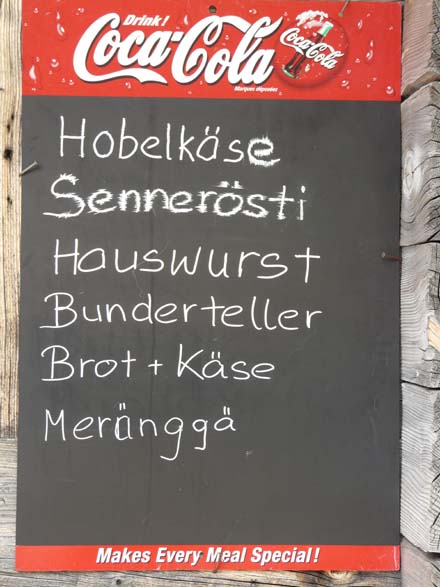 Drink!
Coca-Cola
Marques déposées
Coca-Cola
Hobelkäse
Sennerösti
Hauswurst
Bunderteller
Brot + Käse
Meränggä
Makes Every Meal Special!